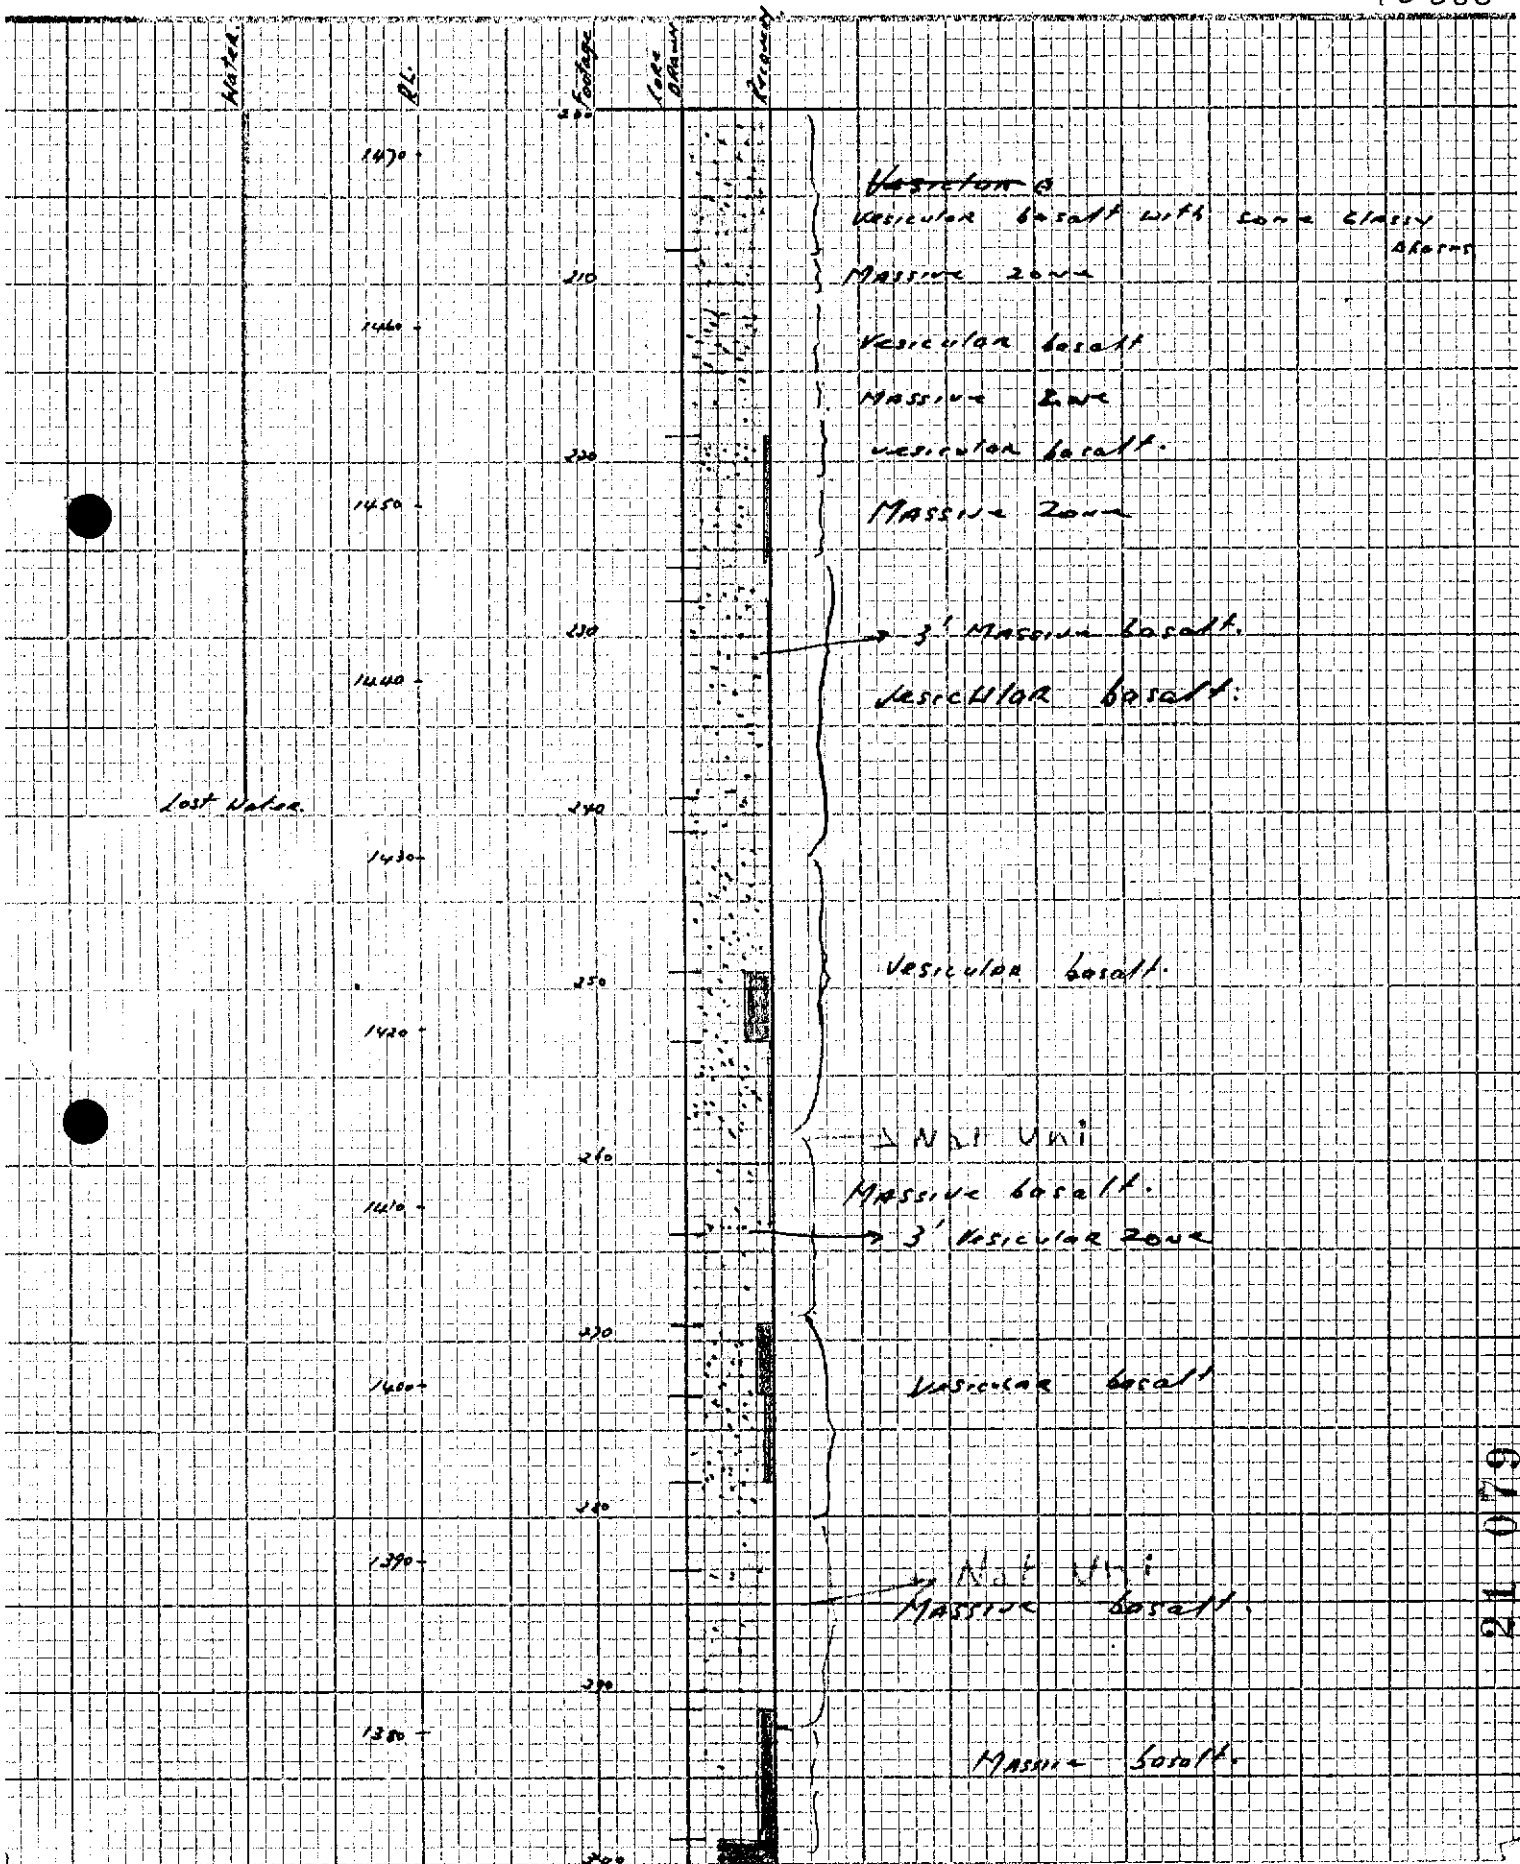 Water.
RL.
Footage
Core Drawn
Recovery.
200
1470
Vesicular basalt with some glassy
Massive zone
210
1460
Vesicular basalt
Massive Zone
vesicular basalt.
220
1450
Massive Zone
230
3' Massive basalt.
1440
Vesicular basalt.
Lost Water.
240
1430
Vesicular basalt.
250
1420
Not Uni
260
Massive basalt.
1410
3' Vesicular Zone
270
1400
Vesicular basalt
280
1390
Not Uni
Massive basalt.
290
1380
Massive basalt.
300
21 079